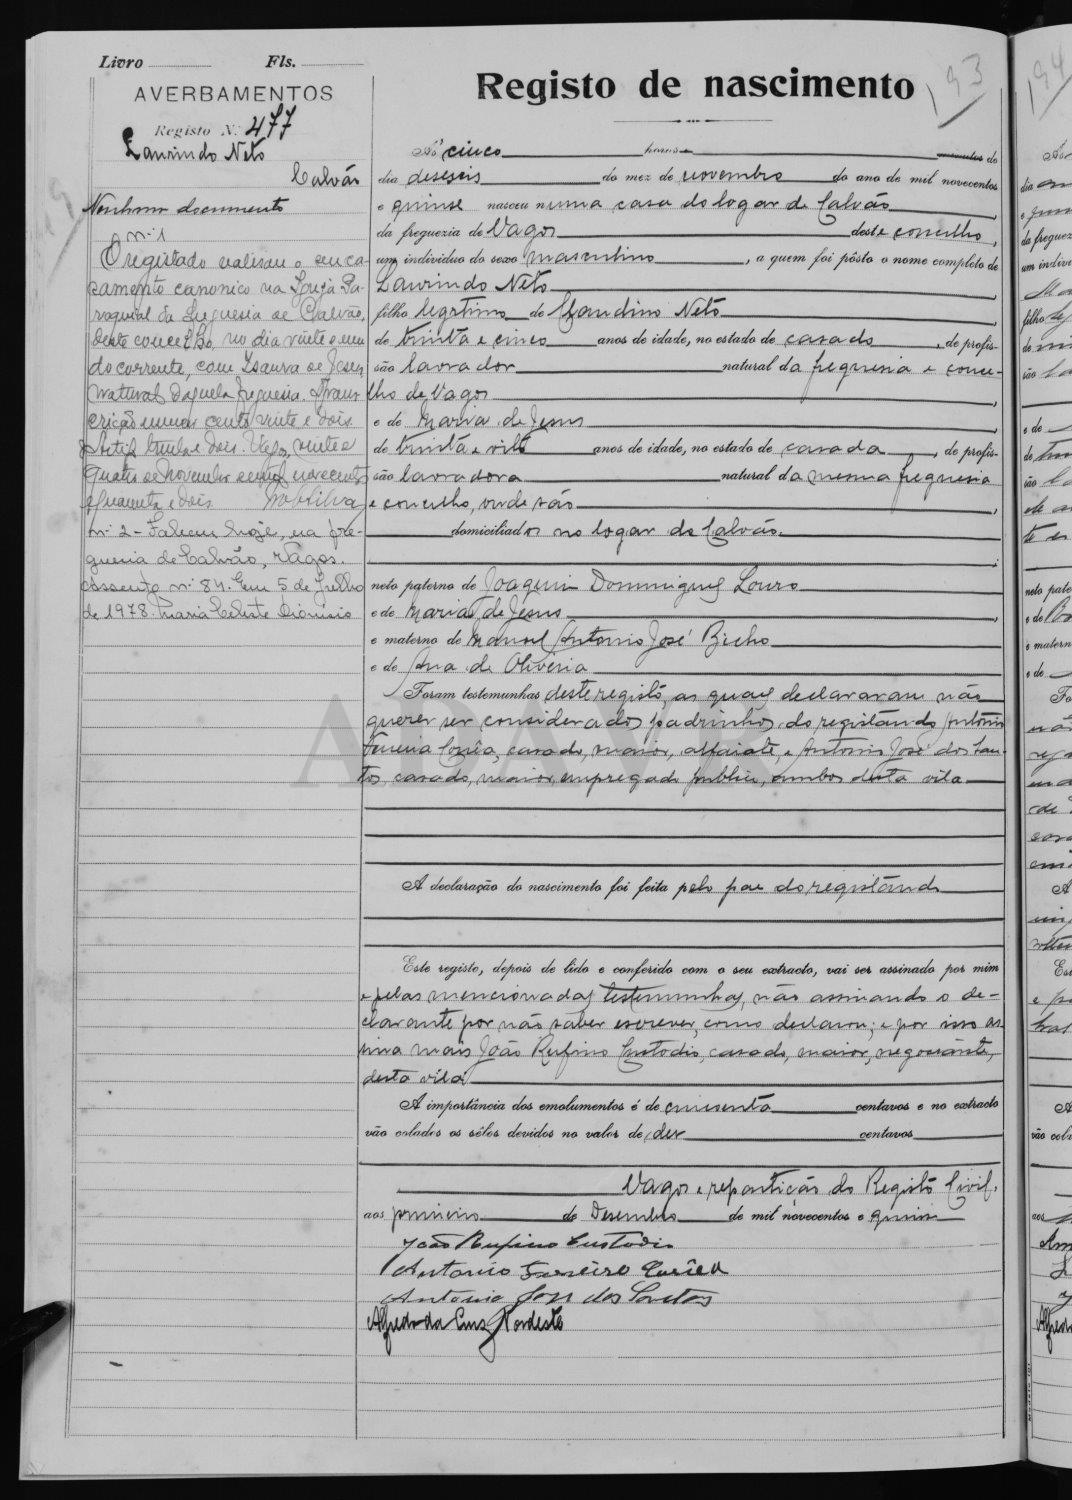 Livro Fls.
AVERBAMENTOS
Registo N.º 477
Laurindo Neto
Calvão
Nenhum documento
n.º 1
O registado realisou o seu ca-
samento canonico na Igreja Pa-
roquial da freguesia de Calvão,
deste concelho, no dia vinte e um
do corrente, com Isaura de Jesus
natural daquela freguesia. Trans-
crição numero cento vinte e dois
Vagos, vinte e
quatro de Novembro de mil novecentos
e quarenta e dois
n.º 2 - Faleceu hoje, na fre-
guesia de Calvão, Vagos.
Assento n.º 84. Em 5 de Julho
de 1978. Maria Celeste Dionisio
193
Registo de nascimento
Ás cinco horas e minutos do
dia deseseis do mez de novembro do ano de mil novecentos
e quinse nasceu numa casa do logar de Calvão,
da freguezia de Vagos deste concelho,
um individuo do sexo masculino, a quem foi pôsto o nome completo de
Laurindo Neto,
filho legitimo de Claudino Neto,
de trinta e cinco anos de idade, no estado de casado, de profis-
são lavrador natural da freguesia e conce-
lho de Vagos,
e de Maria de Jesus,
de trinta e oito anos de idade, no estado de casada, de profis-
são lavradora natural da mesma freguesia
e concelho, onde são,
domiciliados no logar de Calvão.
;
neto paterno de Joaquim Domingues Louro
e de Maria de Jesus,
e materno de Manuel Antonio José Bicho
e de Ana de Oliveira
Foram testemunhas deste registo, as quaes declararam não
querer ser considerados padrinhos do registando Antonio
Ferreira Corrêa, casado, maior, alfaiate, e Antonio José dos San-
tos, casado, maior, empregado publico, ambos desta vila
ADAVR
A declaração do nascimento foi feita pelo pae do registando
Este registo, depois de lido e conferido com o seu extracto, vai ser assinado por mim
e pelas mencionadas testemunhas, não assinando o de-
clarante por não saber escrever, como declarou; e por isso as-
sina mais João Rufino Custodio, casado, maior, negociante,
desta vila
A importância dos emolumentos é de cincoenta centavos e no extracto
vão colados os sêlos devidos no valor de dez centavos
Vagos e repartição do Registo Civil,
aos primeiro de Desembro de mil novecentos e quinse
João Rufino Custodio
Antonio Ferreira Corrêa
Antonio José dos Santos
Alfredo da Cruz Nordeste
194